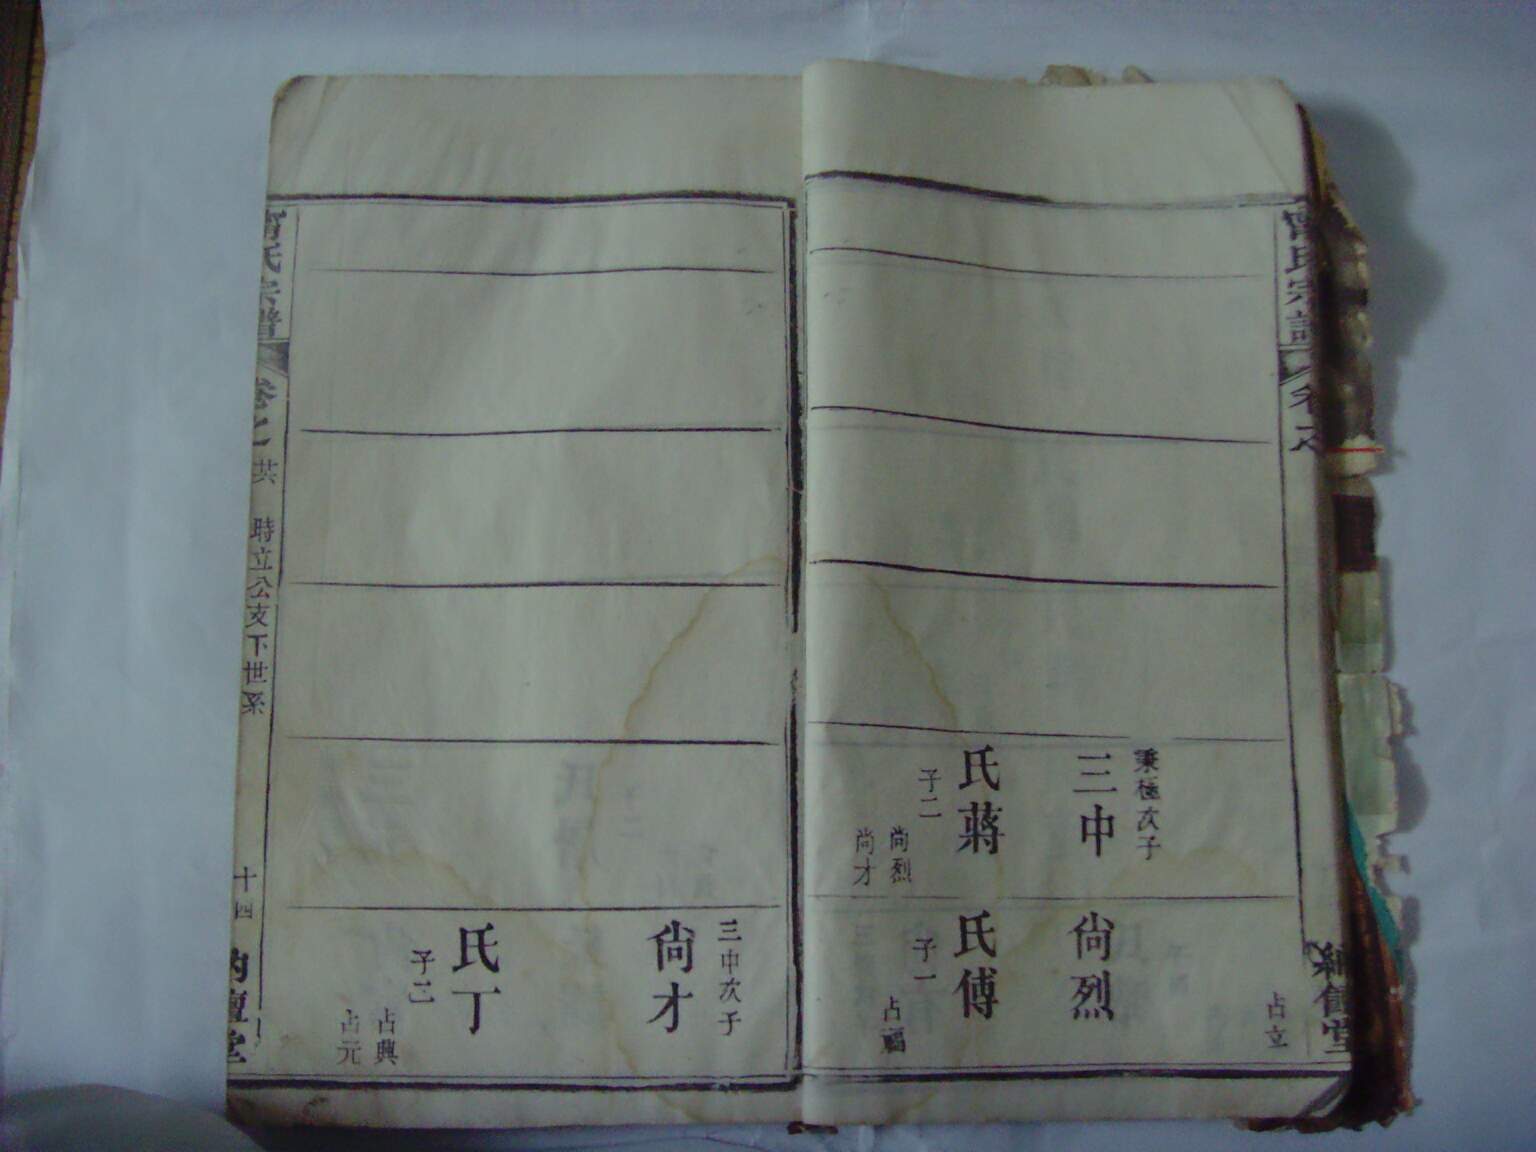 氏宗譜
卷之
占立
秉極次子
三中
氏蔣
子二
尚烈
尚才
尙烈
氏傅
子一
占福
三中次子
尙才
氏丁
子二
占興
占元
氏宗譜
卷七
洪
時立公支下世系
十四
堂